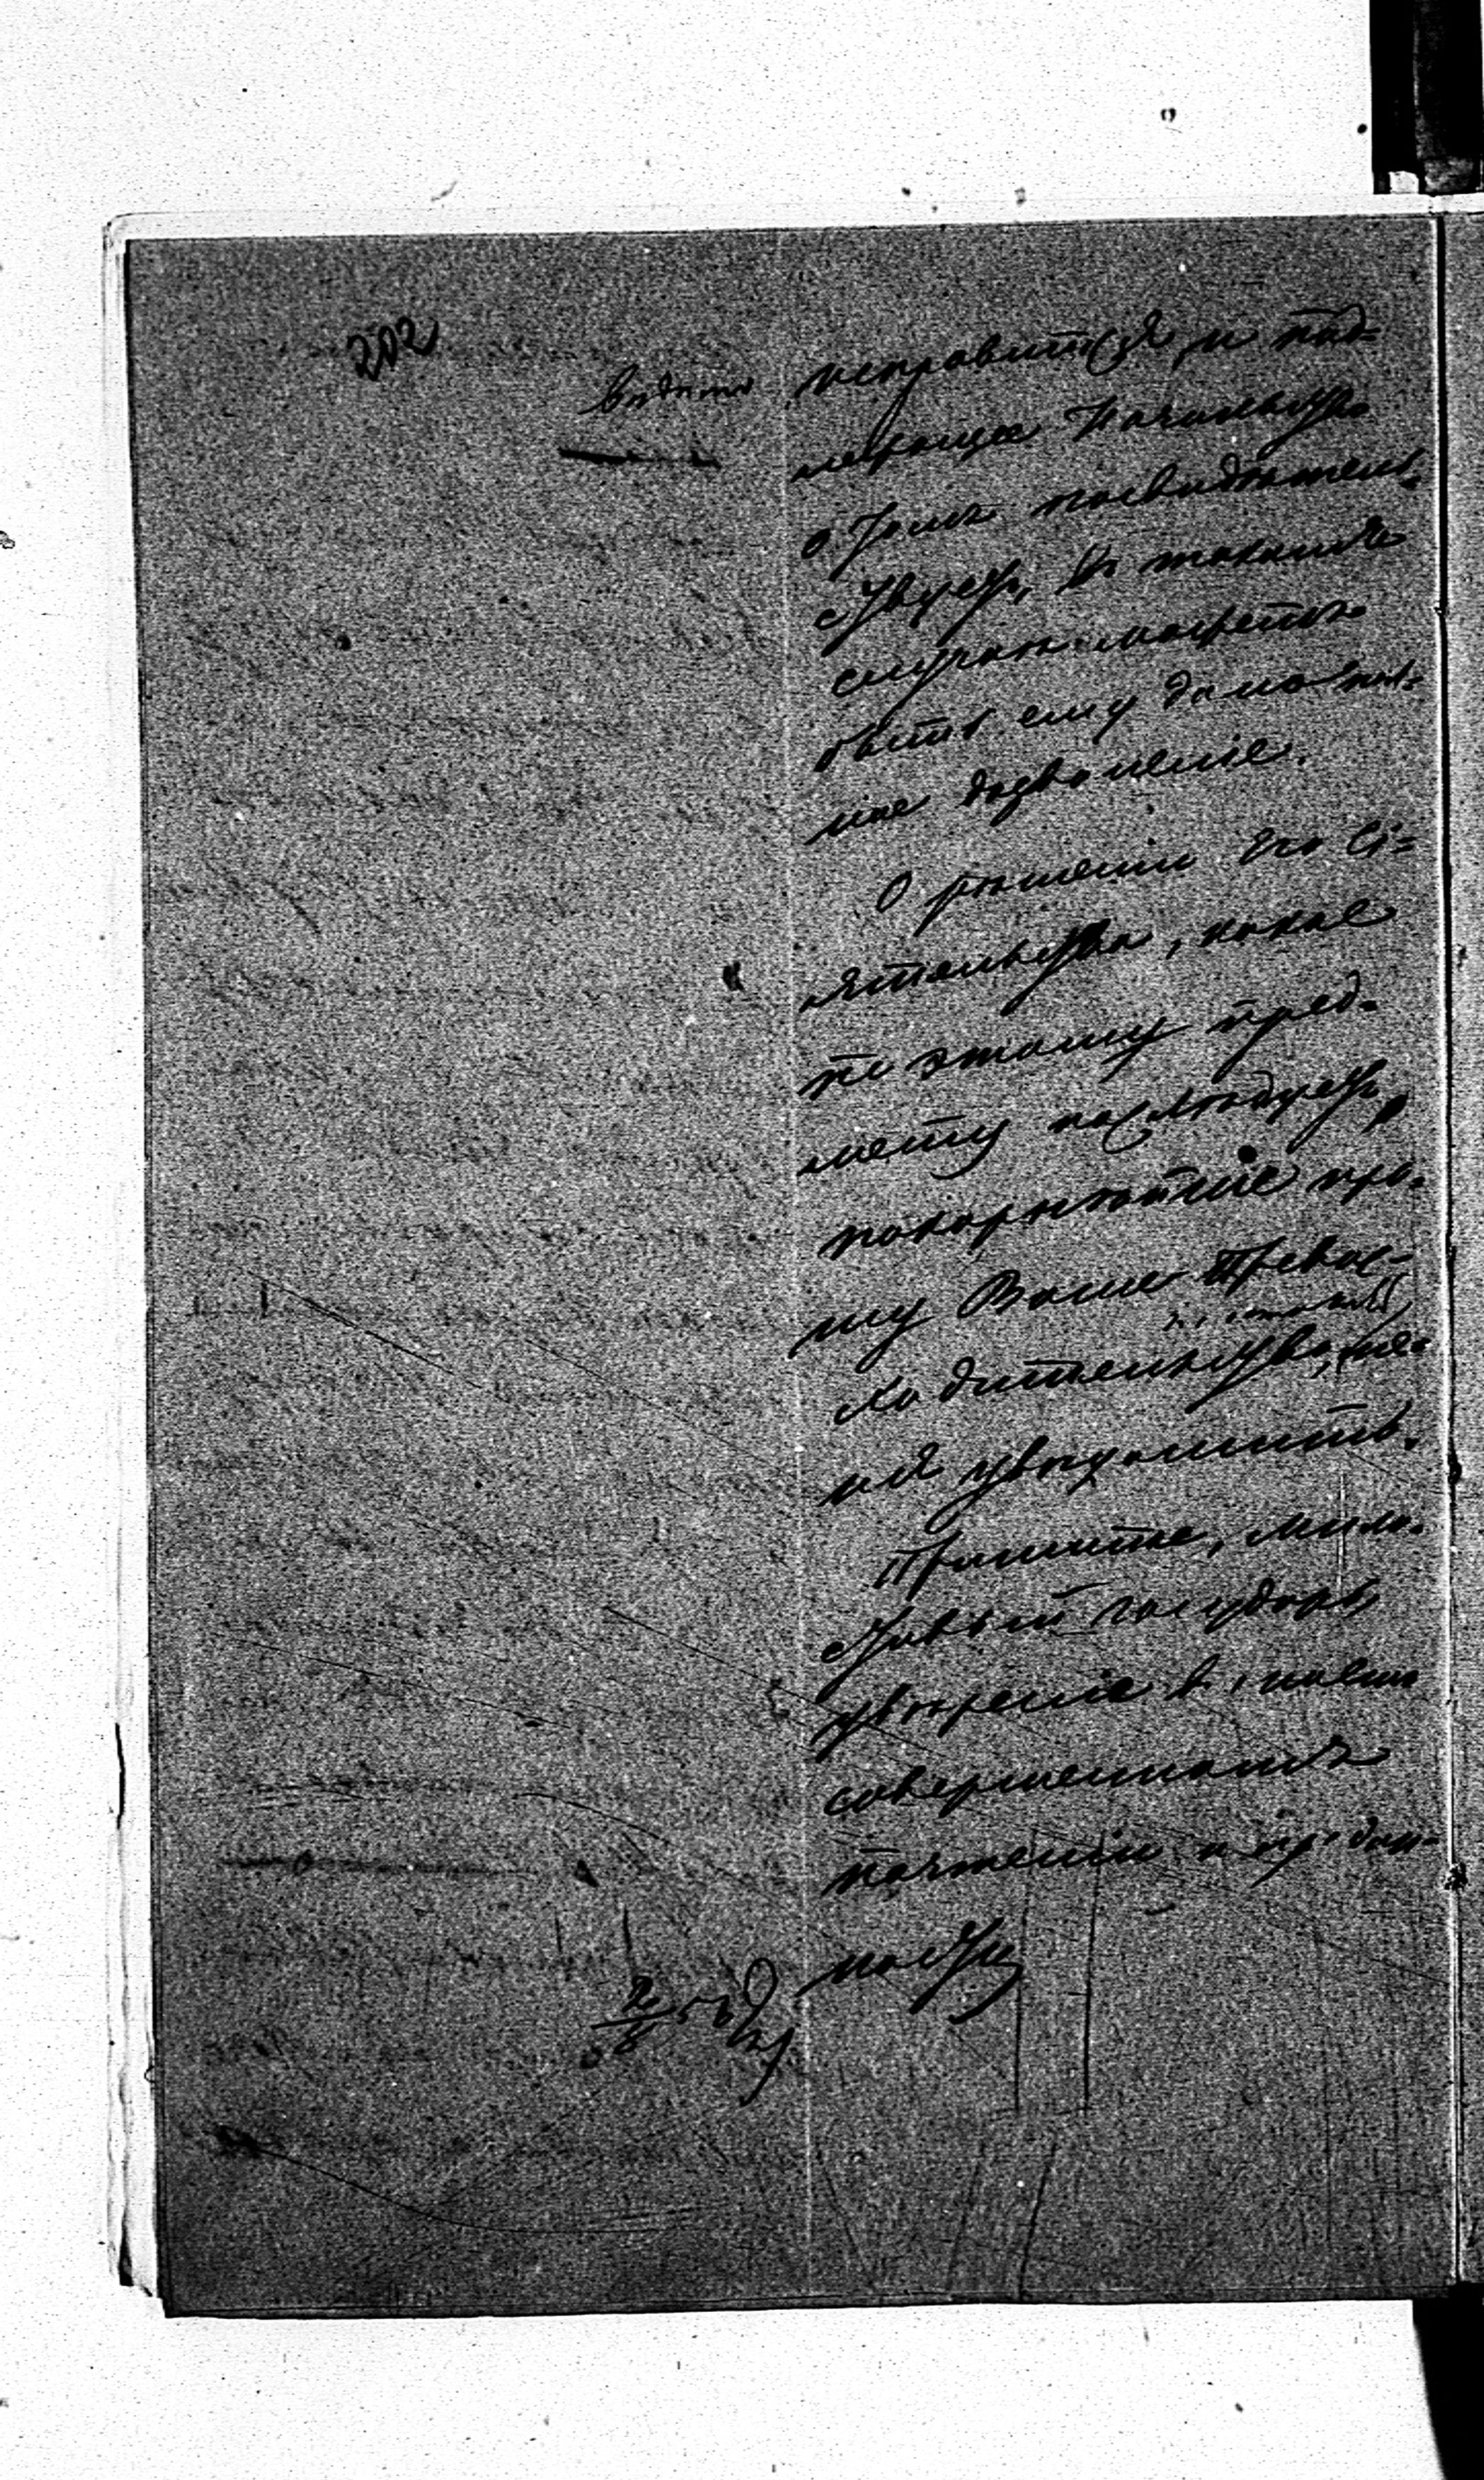 202
исправится, и над-
лежащее Начальство
о томъ засвидѣтель-
ствуетъ, въ такомъ
случаѣ можетъ
быть ему дано пол-
ное дозволеніе.
О рѣшеніи Его Сі-
ятельства, какое
по этому пред-
мету послѣдуетъ,
покорнѣйше про-
шу Ваше Превос-
ходительство, ме-
ня увѣдомить.
Примите, мило-
стивый государь,
увѣреніе въ моемъ
совершенномъ
почтеніи и предан-
ности